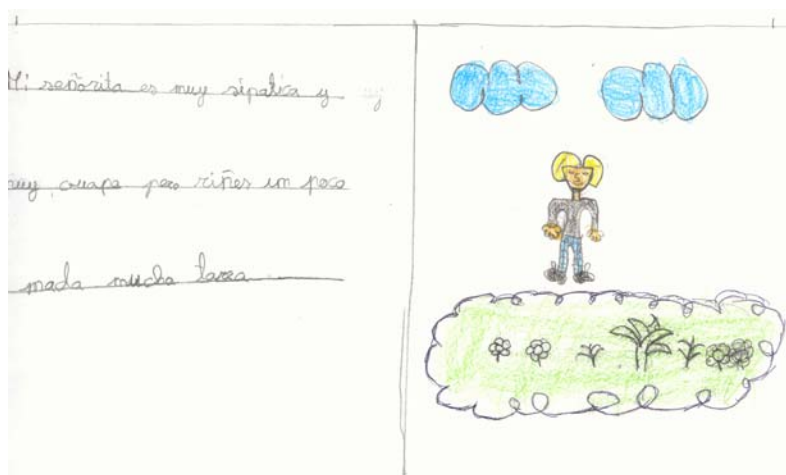 Mi señorita es muy sipatica y
muy guapa pero riñes un poco
mada mucha tarea